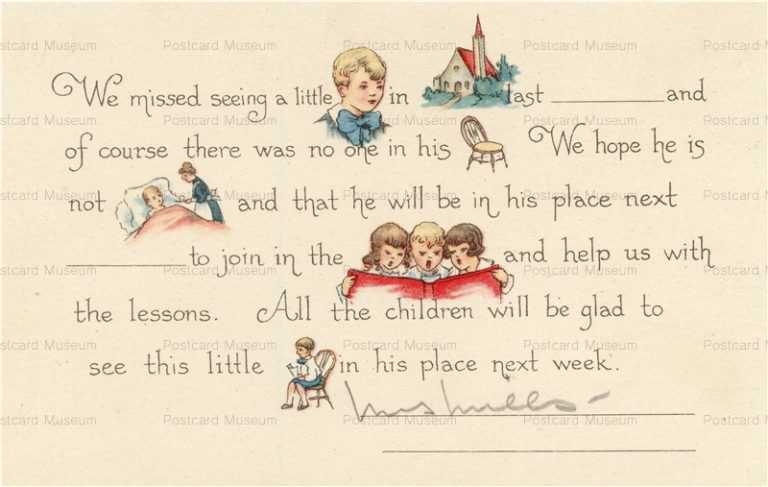 We missed seeing a little in last and
of course there was no one in his We hope he is
not and that he will be in his place next
to join in the and help us with
the lessons. All the children will be glad to
see this little in his place next week.
Mrs Mills
Postcard Museum